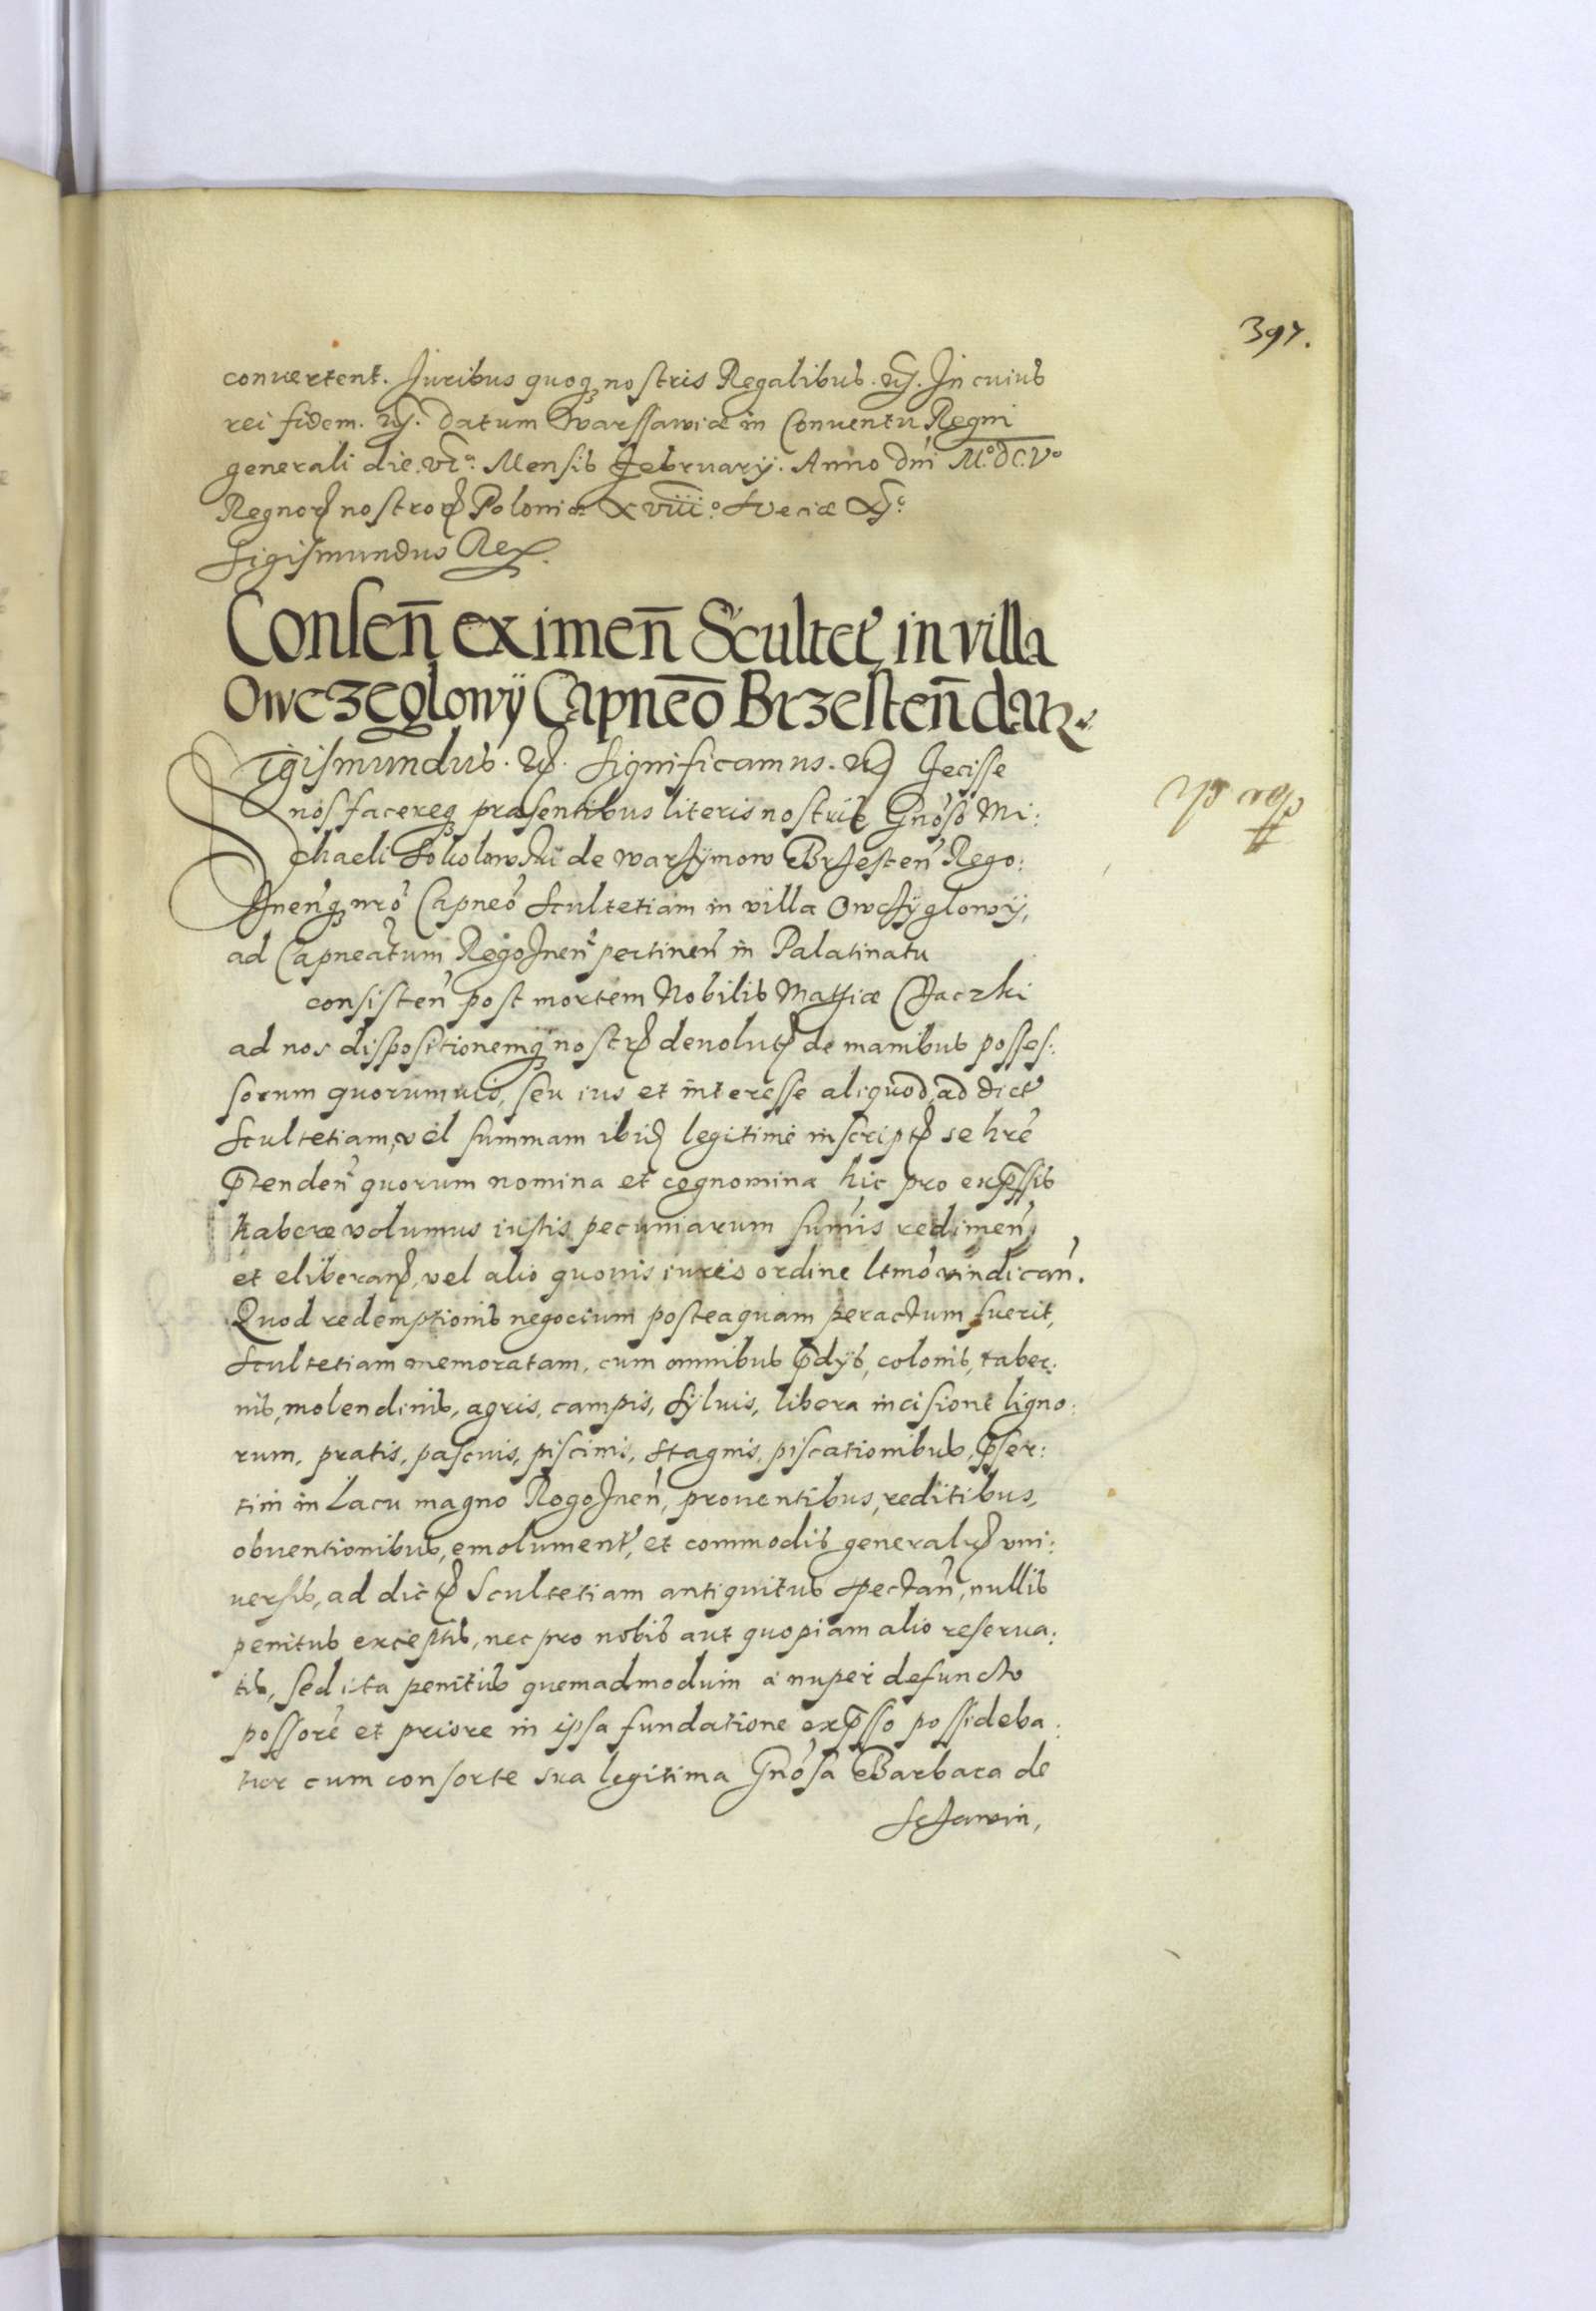 397.
conuertent. Juribus quoq nostris Regalibus. etc. In cuius
rei fidem. etc. Datum Warssawiæ in Conuentu Regni
generali die. VIa. Mensis February. Anno Dni Mo.DC.Vo
Regnorꝝ nostrorꝝ Poloniæ XVIIIo. Sveciæ XIo.
Sigismundus Rex.
Consen̄ eximen̄ Scultet in villa
Owczeglowÿ Capneō Brzesten̄ datꝛ.
Sigismundus. etc. Significamus. etc. Fecisse
nos facereq præsentibus literis nostris Gnoso Mi:
chaeli Sokolowski de Warzÿmow Brzesten Rego:
znenq nro Capneo Scultetiam in villa Owczÿglowÿ,
ad Capneatum Regoznen pertinen in Palatinatu
consisten post mortem Nobilis Mathiæ Czaczki
ad nos dispositionemq nostrꝫ deuolutꝫ de manibus posses:
sorum quorumuis, seu ius et interesse aliquod, ad dict
Scultetiam, vel summam ibidꝫ legitime inscriptꝫ se hre
ꝓtenden quorum nomina et cognomina hic pro exp̄ssis
habere volumus iustis pecuniarum sumis redimen,
et eliberanꝫ, vel alio quouis iuris ordine ltmo vindican.
Quod redemptionis negocium posteaquam peractum fuerit,
Scultetiam memoratam, cum omnibus p̄dÿs, colonis, taber:
nis, molendinis, agris, campis, sÿluis, libera incisione ligno:
rum, pratis, pascuis, piscinis, stagnis, piscationibus, p̄ser:
tim in Lacu magno Rogoznen, prouentibus, reditibus,
obuentionibus, emolument, et commodis generalꝫ vni:
uersis, ad dictꝫ Scultetiam antiquitus spectan, nullis
penitus exceptis, nec pro nobis aut quopiam alio reserua:
tis, sed ita penitus quemadmodum a nuper defuncto
possore et priore in ipsa fundatione exp̄sso possideba:
tur cum consorte sua legitima Gnosa Barbara de
Sczawin,